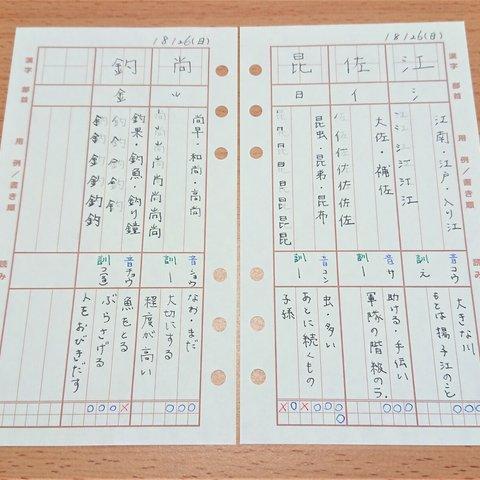 18/26(日)
漢字
江
佐
昆
部首
氵
イ
日
用例/書き順
江南・江戸・入り江
江江江江江江
大佐・補佐
佐佐佐佐佐佐佐
昆虫・昆弟・昆布
昆昆昆昆昆昆昆昆
読み
音 コウ
訓 え
音 サ
訓 ー
音 コン
訓 ー
大きな川
もとは揚子江のこと
助ける・手伝い
軍隊の階級の1つ
虫・多い
あとに続くもの
子孫
18/26(日)
漢字
尚
釣
部首
⺌
金
用例/書き順
尚早・和尚・高尚
尚尚尚尚尚尚尚尚
釣果・釣魚・釣り鐘
釣釣釣釣釣
釣釣釣釣釣釣
読み
音 ショウ
訓 ー
音 チョウ
訓 つ(る)
なお・まだ
大切にする
程度が高い
魚をとる
ぶらさげる
人をおびきだす